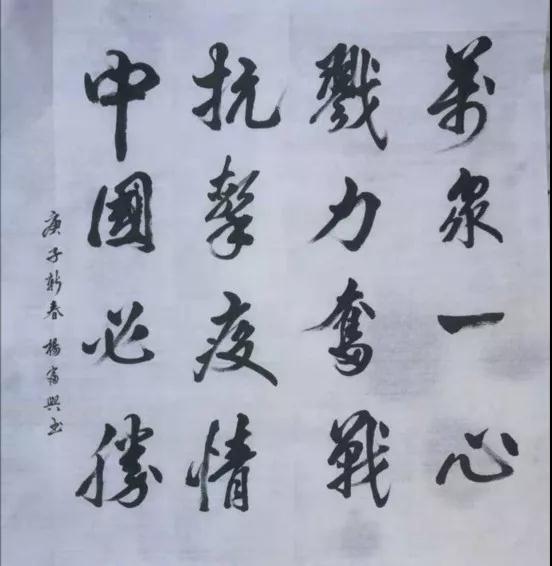 萬衆一心
戮力奮戰
抗擊疫情
中國必勝
庚子新春 楊富興書